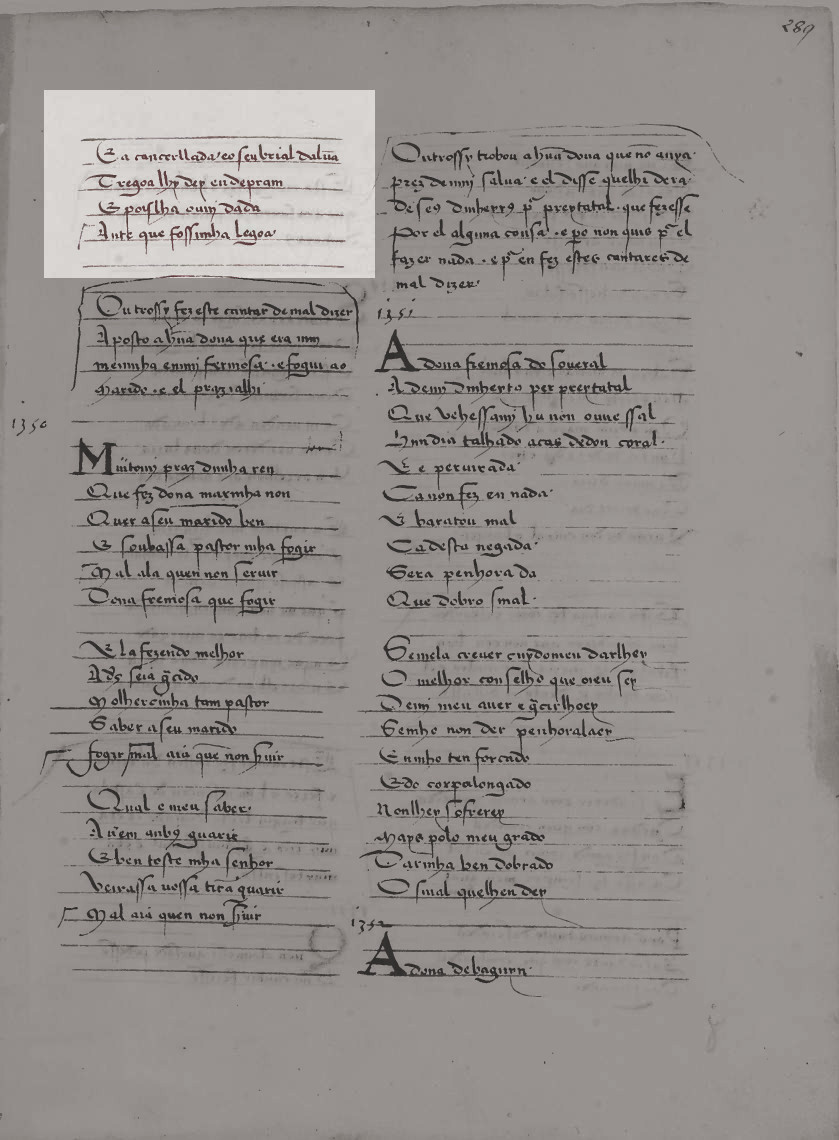 289
E a cancerllada · eo seu brial daluã
Tregoa lhy dey en depram
E poys lha ouuj dada
Ante que fossimha legoa
Outrossy fez este cantar de mal dizer
Aposto a hũa dona que era muj
meninha emuj fermosa · e fogiu ao
marido · e el prazialhi
1350
Muitomj praz dunha ren
Que fez dona marinha non
Quer a seu marido ben
E soubassa pastor mha fogir
Mal aia quen non seruir
Dona fremosa que fogir
E la fezendo melhor
A ds̃ seia g̃cido
Molhercinha tam pastor
Saber a seu marido
fogir mal aia que non s̃uir
Qual e meu saber ·
guarir
E ben toste mha senhor
ueirassa uossa guarir
Mal aia quen non s̃uir
Outrossy trobou a hũa dona que nõ auya
prez de muj salua · e el disse quelhi dera
De seus dinheyros p̃ preytatal · que fezesse
Por el alguna cousa · e pero non quis p̃ el
fazer nada · e p̃ en fez estes cantares de
mal dizer ·
1351
A dona fremosa do soueral
A de mj dinheyros per preytatal
Que uehessamj hu non ouuessal
Hun dia talhado acas dedon coral ·
E e periurada ·
Ca non fez en nada ·
E baratou mal
Ca desta negada ·
Sera penhorada
Que dobro sinal ·
Semela creuer cuydomeu darlhey
O melhor conselho que oieu sey
De mj meu auer e g̃cirlhoey
Semho non der penhoralaey
Ca mho ten forcado
Edo corpalongado
Nonlhey sofrerey
Mays polo meu grado
Darmha ben dobrado
O sinal quelhen dey
1352
A dona de bagüyn ·